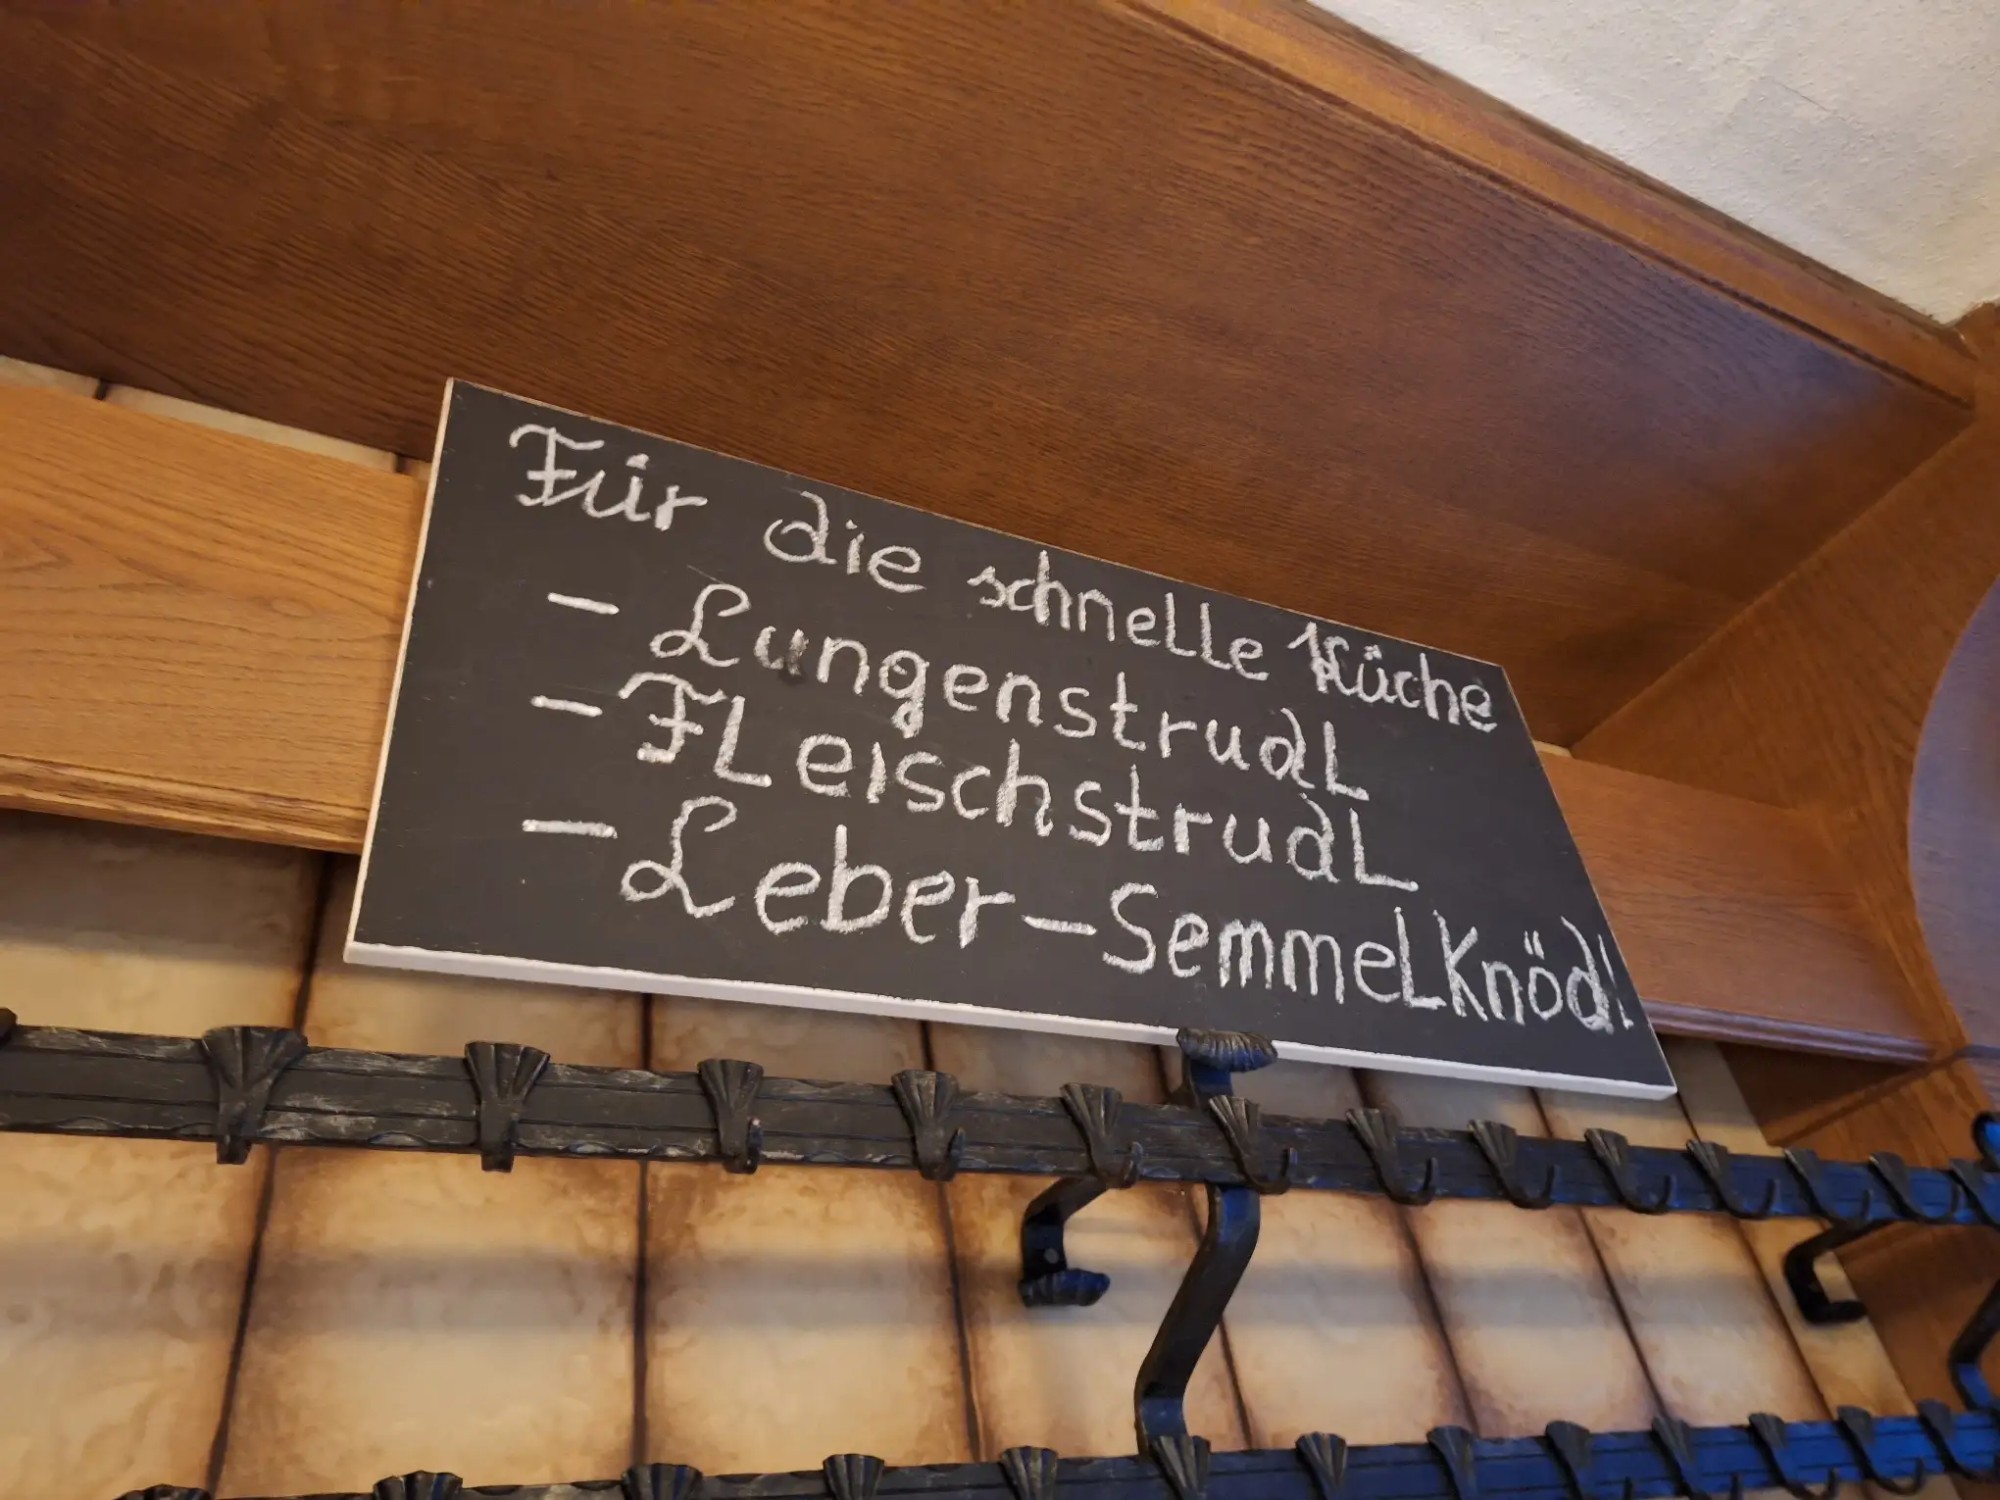 Für die schnelle Küche
- Lungenstrudl
- Fleischstrudl
- Leber-Semmelknödl